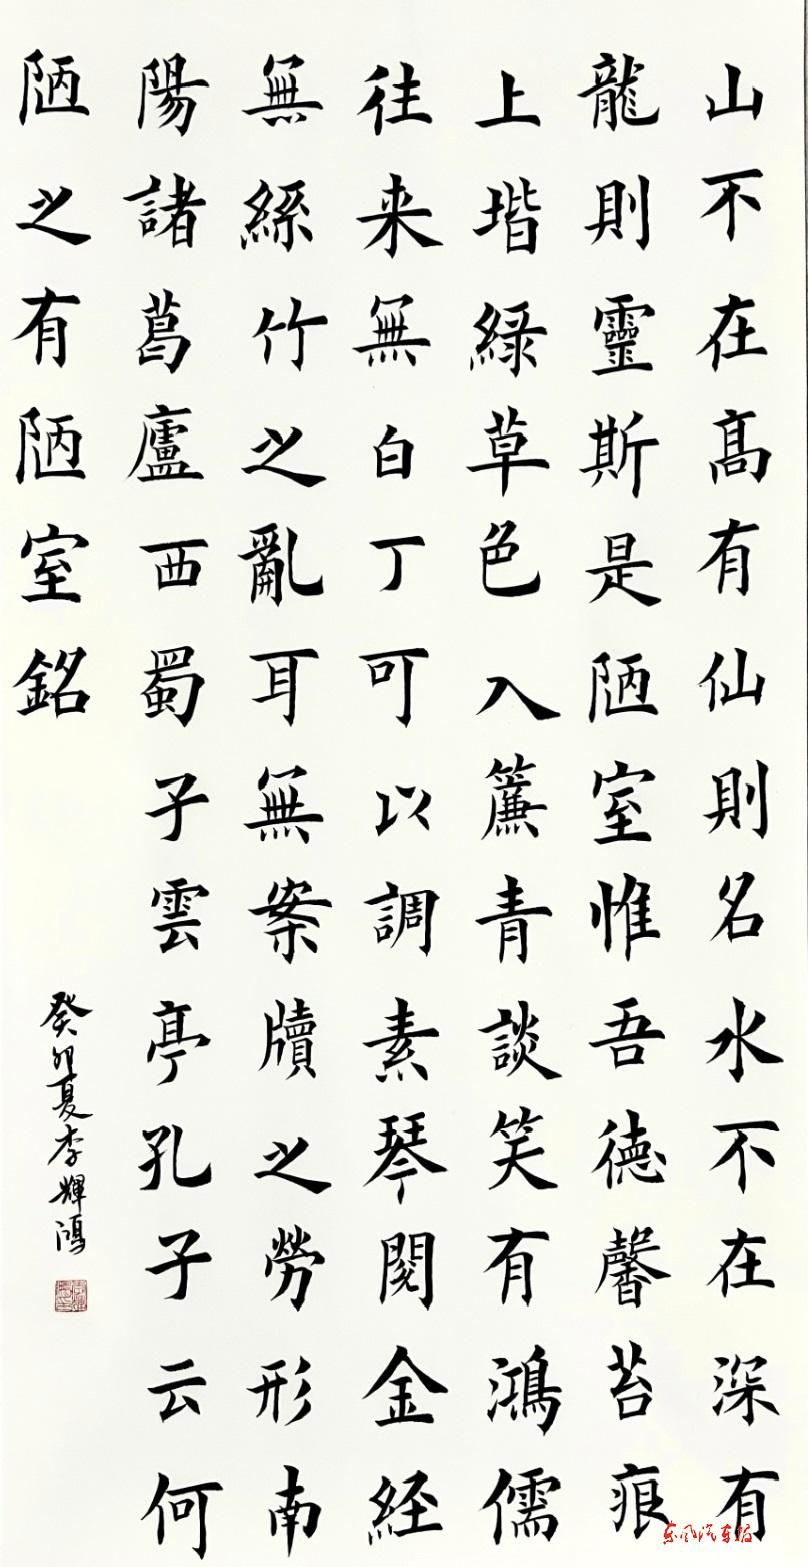 山不在高有仙則名水不在深有
龍則靈斯是陋室惟吾德馨苔痕
上堦綠草色入簾青談笑有鴻儒
往来無白丁可以調素琴閱金経
無絲竹之亂耳無案牘之勞形南
陽諸葛廬西蜀子雲亭孔子云何
陋之有陋室銘
癸卯夏李輝鴻
东风汽车报